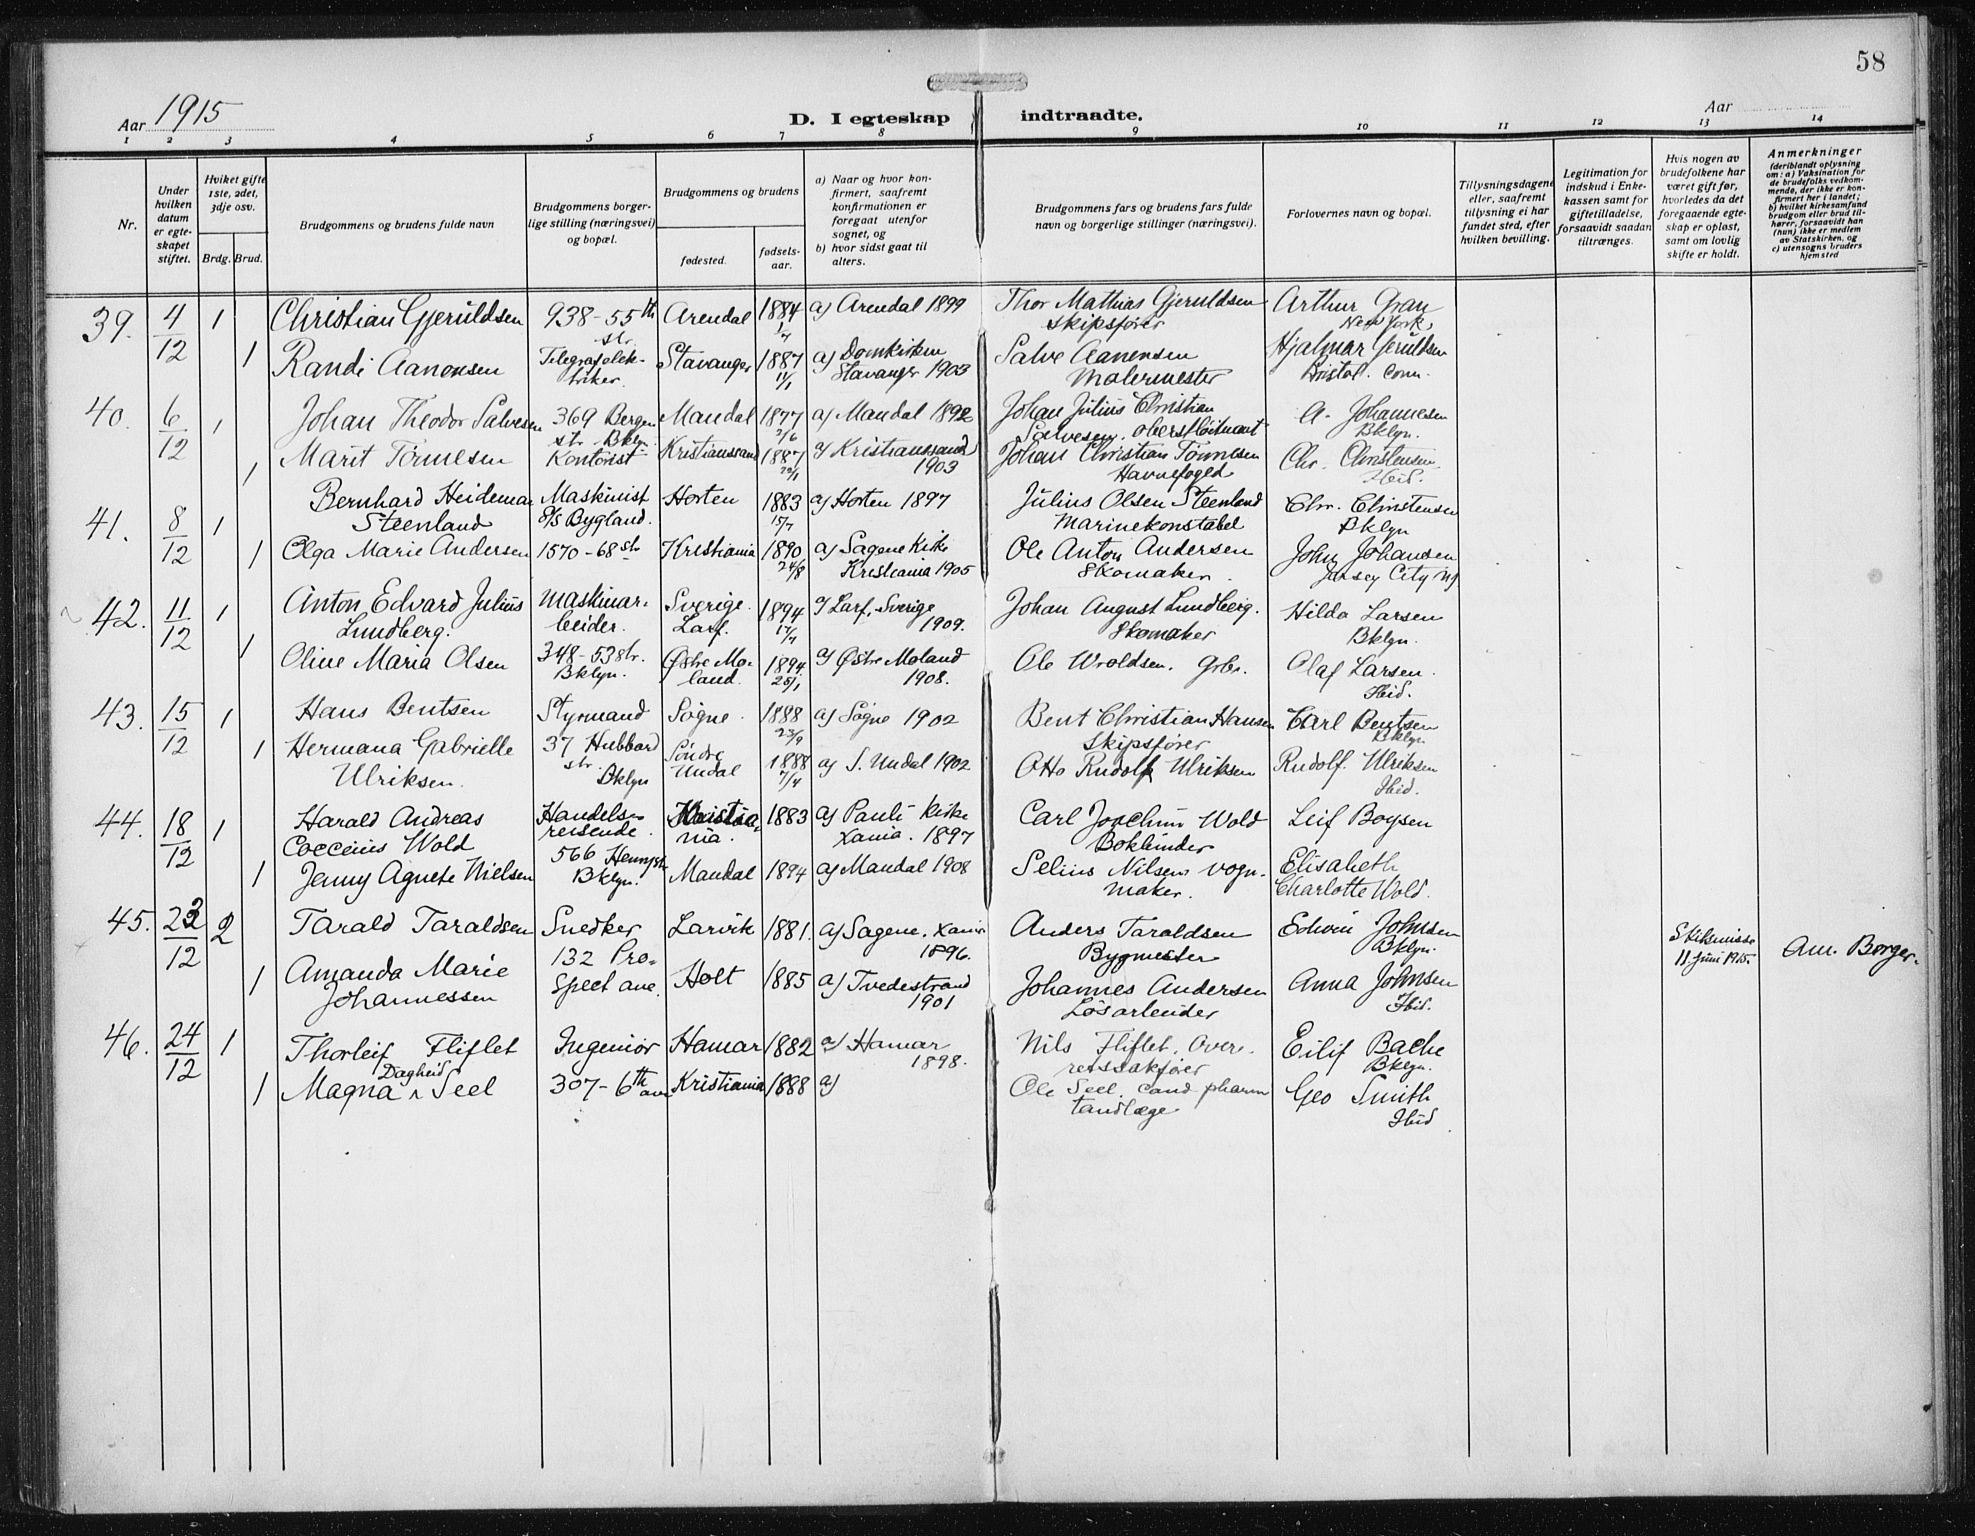 58
Aar 1915
D. I egteskap indtraadte.
Aar
1 2 3 4 5 6 7 8 9 10 11 12 13 14
Nr.
Under hvilken datum er egteskapet stiftet.
Hviket gifte 1ste, 2det, 3dje osv.
Brdg. Brud.
Brudgommens og brudens fulde navn
Brudgommens borgerlige stilling (næringsvei) og bopæl.
Brudgommens og brudens
fødested.
fødselsaar.
a) Naar og hvor konfirmert, saafremt konfirmationen er foregaat utenfor sognet, og
b) hvor sidst gaat til alters.
Brudgommens fars og brudens fars fulde navn og borgerlige stillinger (næringsvei).
Forlovernes navn og bopæl.
Tillysningsdagene eller, saafremt tillysning ei har fundet sted, efter hvilken bevilling.
Legitimation for indskud i Enkekassen samt for giftetilladelse, forsaavidt saadan tiltrænges.
Hvis nogen av brudefolkene har været gift før, hvorledes da det foregaaende egteskap er opløst, samt om lovlig skifte er holdt.
Anmerkninger
(deriblandt oplysning om: a) Vaksination for de brudefolks vedkommende, der ikke er konfirmert her i landet; b) hvilket kirkesamfund brudgom eller brud tilhører, forsaavidt han (hun) ikke er medlem av Statskirken, og c) utensogns bruders hjemsted
39. 4/12 1 Christian Gjeruldsen 938-55th str. Arendal 1884 a) Arendal 1899 Thor Mathias Gjeruldsen Skipsfører Arthur Gran New York,
1 Randi Aanonsen Telegrafelektriker. Stavanger 1887 11/1 a) Domkirken Stavanger 1903 Salve Aanensen Malermester Hjalmar Gjeruldsen Bristol. Conn.
40. 6/12 1 Johan Theodor Salvesen 369 Bergen str. Bklyn. Mandal 1877 2/6 a) Mandal 1892 Johan Julius Christian Salvesen. oberstløitnant A. Johannesen Bklyn.
1 Marit Tönnesen Kontorist Kristianssand 1887 29/1 a) Kristianssand 1903 Johan Christian Tönnesen Havnefoged Chr. Christensen. Ibid.
41. 8/12 1 Bernhard Heideman Steenland Maskinist S/S Bygland. Horten 1883 15/7 a) Horten 1897 Julius Olsen Steenland Marinekonstabel Chr. Christensen Bklyn
1 Olga Marie Andersen 1570-68 str Kristiania 1890 24/8 a) Sagene Kirke Kristiania 1905 Ole Anton Andersen Skomaker. John Johansen Jersey City NJ
42. 11/12 1 Anton Edvard Julius Lundberg. Maskinarbeider. Sverige. 1894 17/7 a) Larf, Sverige 1909. Johan August Lundberg. Skomaker Hilda Larsen Bklyn.
1 Oline Maria Olsen 348-53 str. Bklyn. Østre Moland. 1894 25/1 a) Østre Moland 1908. Ole Wroldsen. Grbr. Olaf Larsen. Ibid.
43. 15/12 1 Hans Bentsen Styrmand Søgne. 1888 23/9 a) Søgne 1902 Bent Christian Hansen Skipsfører Carl Bentsen Bklyn
1 Hermana Gabrielle Ulriksen. 37 Hubbard str. Bklyn Söndre Undal 1888 7/4 a) S. Undal 1902 Otto Rudolf Ulriksen Rudolf. Ulriksen Ibid.
44. 18/12 1 Harald Andreas Cocceius Wold Handelsreisende. Kristiania. 1883 a) Pauli Kirke Xania. 1897 Carl Joachim Wold Bokbinder Leif Boysen
1 Jenny Agnete Nielsen 566 Henry str Bklyn. Mandal 1894 a) Mandal 1908 Selius Nilsen vognmaker. Elisabeth Charlotte Wold.
45. 23/12 2 Tarald Taraldsen Snedker Larvik 1881. a) Sagene, Xania 1896. Anders Taraldsen Bygmester Edwin Johnsen Bklyn. Skilsmisse 11 Juni 1915. Am. Borger.
1 Amanda Marie Johannessen 132 Prospect ave. Holt 1885 a) Tvedestrand 1901 Johannes Andersen Løsarbeider Anna Johnsen Ibid.
46. 24/12 1 Thorleif Fliflet Ingeniør Hamar 1882 a) Hamar 1898. Nils Fliflet, Overretssakfører Eilif Bache Bklyn.
1 Magna Dagheid Seel 307-6th ave Kristiania 1888 a) Ole Seel. cand pharm tandlæge Geo Smith Ibid